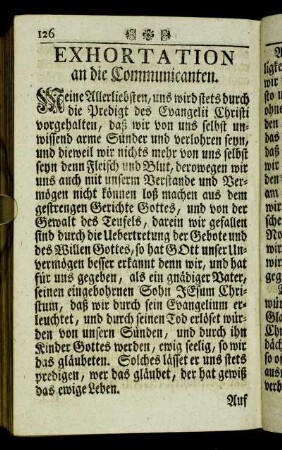 126
EXHORTATION
an die Communicanten.
Meine Allerliebsten, uns wird stets durch
die Predigt des Evangelii Christi
vorgehalten, daß wir von uns selbst un-
wissend arme Sünder und verlohren seyn,
und dieweil wir nichts mehr von uns selbst
seyn denn Fleisch und Blut, derowegen wir
uns auch mit unserm Verstande und Ver-
mögen nicht können loß machen aus dem
gestrengen Gerichte Gottes, und von der
Gewalt des Teufels, darein wir gefallen
sind durch die Uebertretung der Gebote und
des Willen Gottes, so hat GOtt unser Un-
vermögen besser erkannt denn wir, und hat
für uns gegeben, als ein gnädiger Vater,
seinen eingebohrnen Sohn JEsum Chri-
stum, daß wir durch sein Evangelium er-
leuchtet, und durch seinen Tod erlöset wür-
den von unsern Sünden, und durch ihn
Kinder Gottes werden, ewig seelig, so wir
das gläubeten. Solches lässet er uns stets
predigen, wer das gläubet, der hat gewiß
das ewige Leben.
Auf